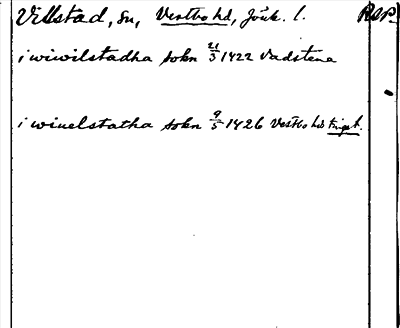 Villstad, sn, Västbo hd, Jönk. l. Rsp
i wiwilstadha sokn 21/3 1422 Vadstena
i winelstatha sokn 9/5 1426 Västbo hds tingpl.